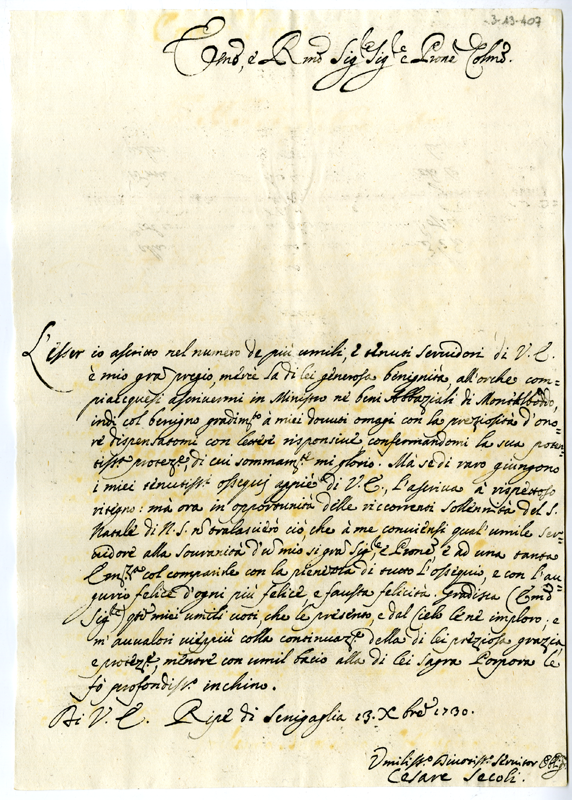 3-13-407
Emo, e Rmo Sig.r Sig.r e Prone Colmo.
L'esser io ascritto nel numero de più umili, e tenuti servidori di V. E.
è mio gra pregio, mercè la di lei generosa benignità, all'orche com=
piacquesi ascrivermi in Ministro ne beni Abbaziali di Monte
indi col benigno gradim.to à miei dovuti omagi con la preziosità d'ono=
re dispensatomi con lettere risponsive confermandomi la sua poten=
tiss.a protez.e di cui sommam.te mi glorio. Mà se di raro giungono
i miei tenutiss.i ossequj appiè di V. E., l'ascriva à rispettoso
ritegno: mà ora in opportunità delle riccorrenti Sollennità del S.
Natale di N. S. n tralascierò ciò, che à me conviensi qual'umile ser=
vidore alla sovranità d'u mio si gra Sig.re e Prone, e ad una tanta
Em.za col comparirle con la pienezza di tutto l'ossequio, e con l'au=
gurio felice d'ogni più felice, e fausta felicità. Gradisca Emo
Sig.re qti miei umili voti, che le presento, e dal Cielo le ne imploro, e
m'avvalori viepiù colla continuaz.e della di lei preziosa grazia
e protez.e, mentre con umil bacio alla di lei Sagra Porpora le
fò profondiss.o inchino.
Di V. E. Ripe di Senigaglia 13. Xbre 1730.
Umiliss.o Divotiss.o Servitor Obl.
Cesare Secoli.